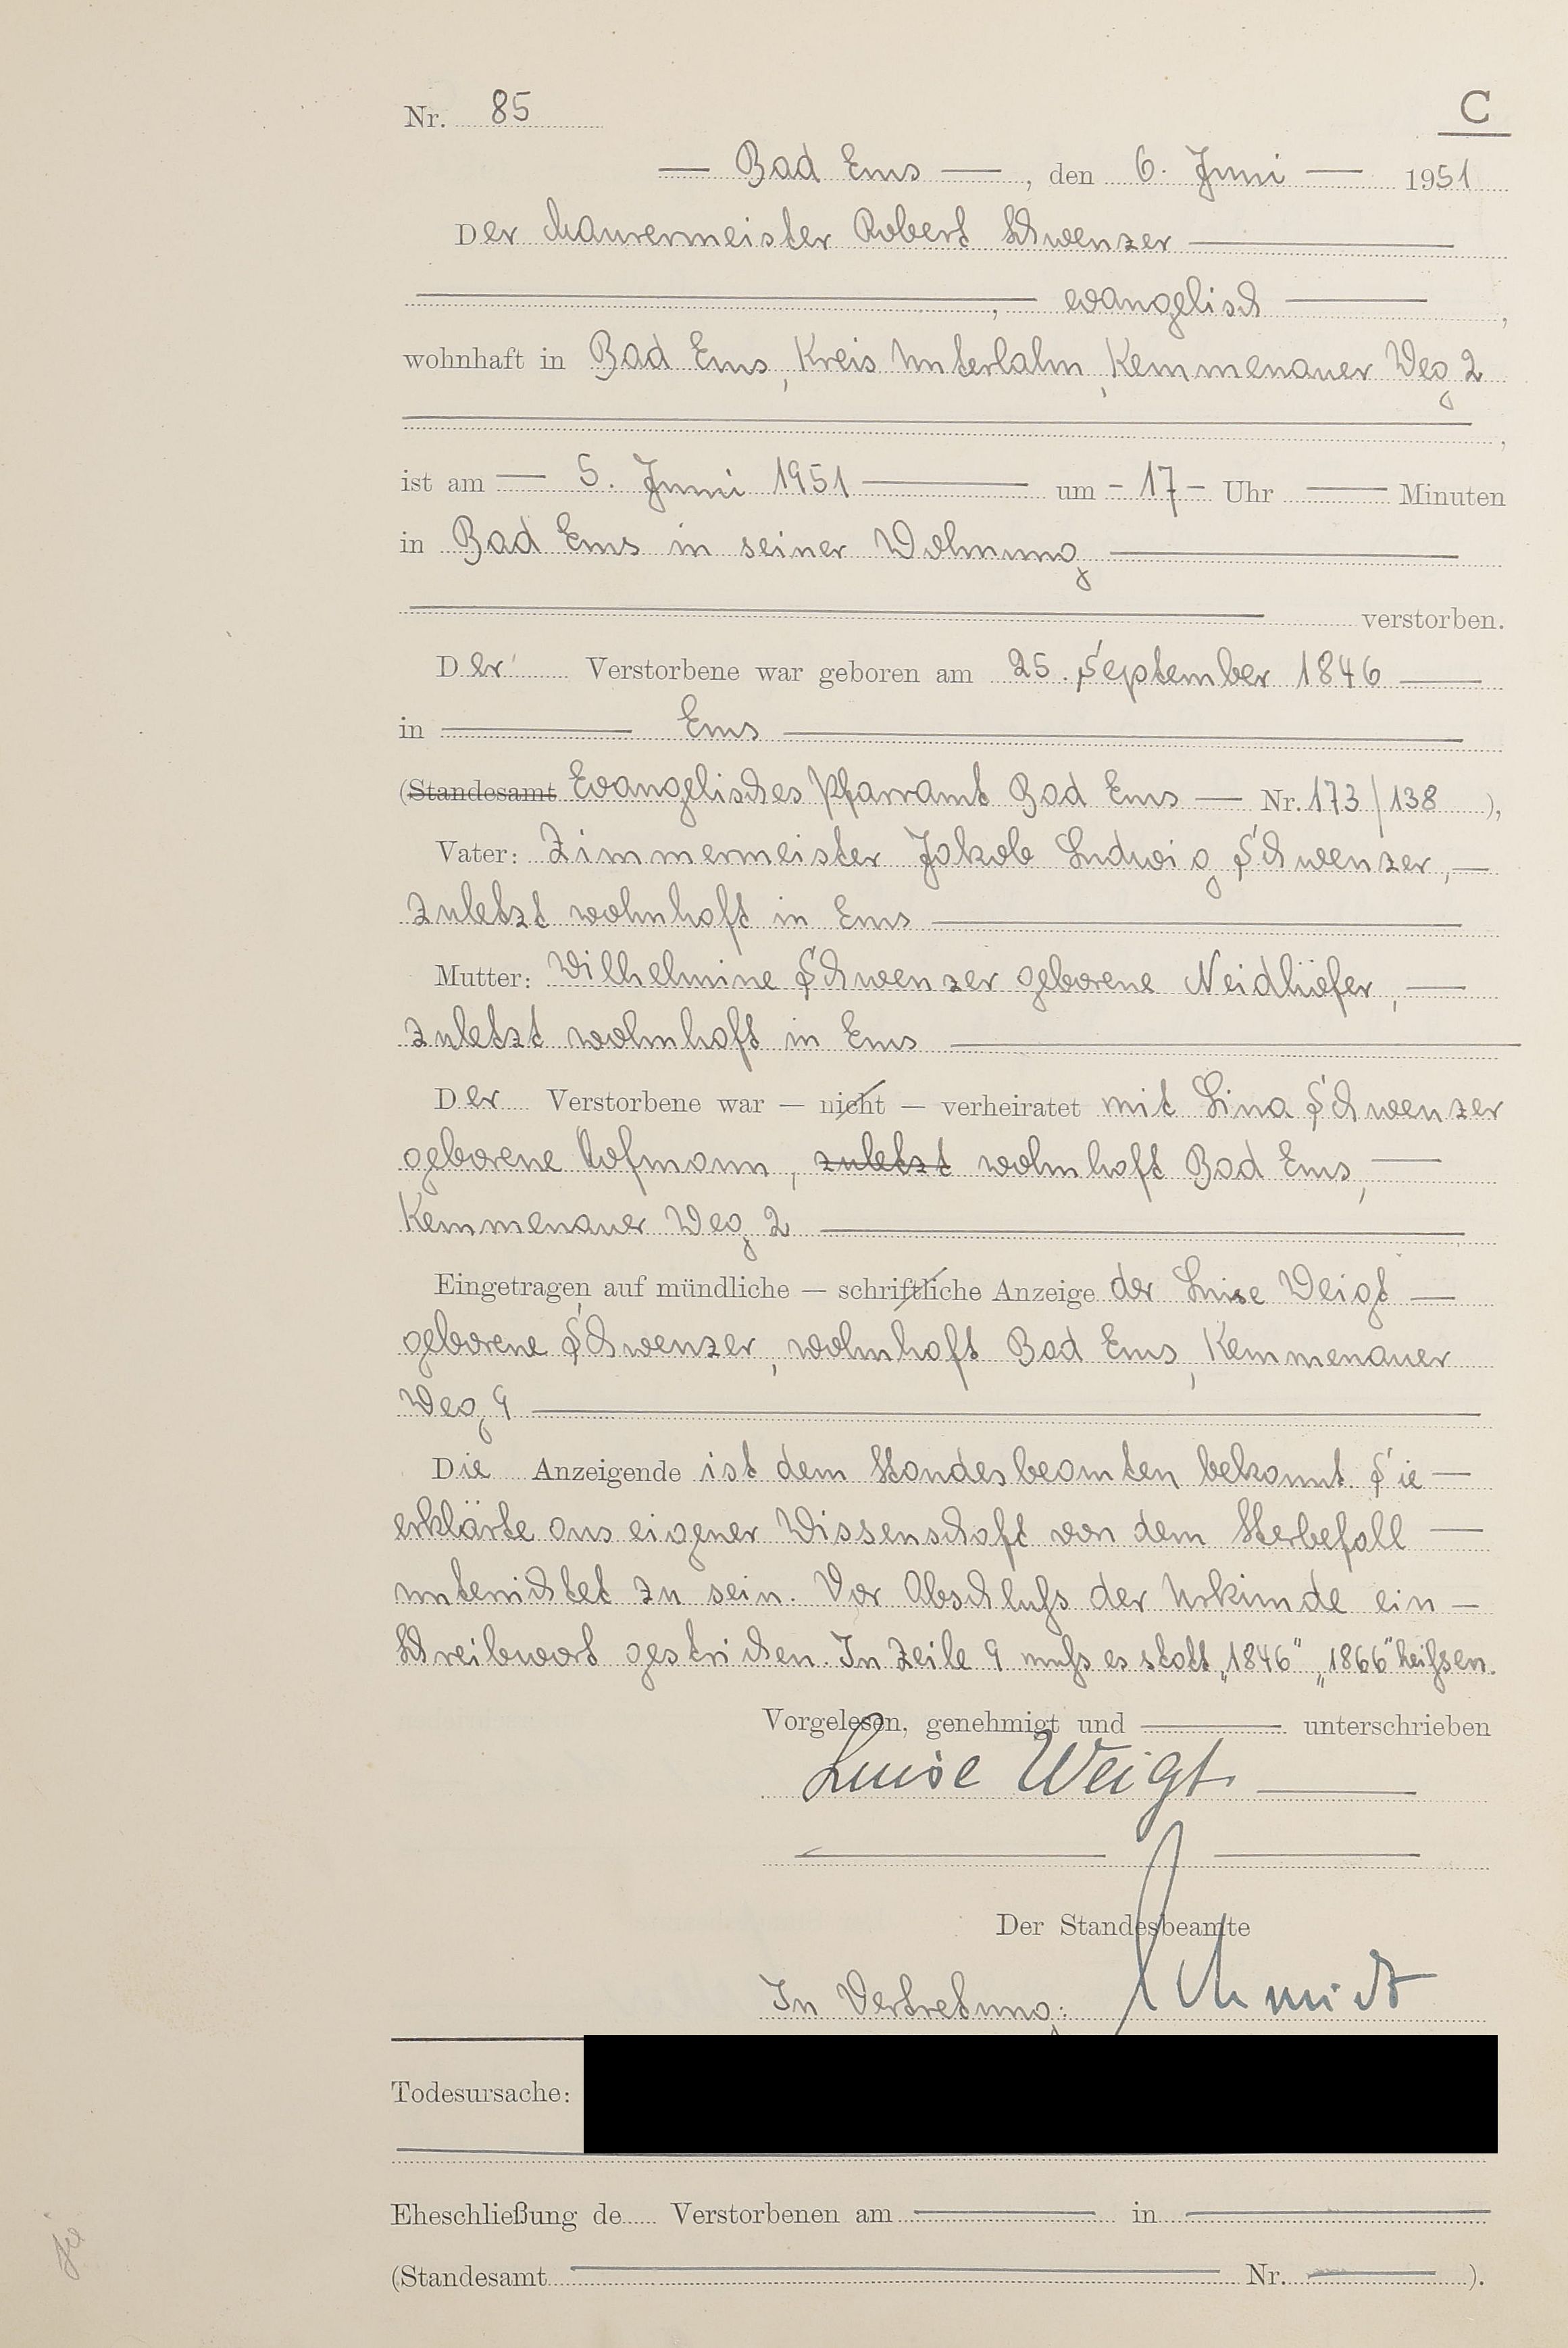 Nr. 85
C
— Bad Ems — , den 6. Juni — 1951
Der Maurermeister Robert Schwenzer —
— , — evangelisch — ,
wohnhaft in Bad Ems, Kreis Unterlahn, Kemmenauer Weg 2
— ,
ist am — 5. Juni 1951 — um - 17 - Uhr — Minuten
in Bad Ems in seiner Wohnung —
— verstorben.
Der Verstorbene war geboren am 25. September 1846 —
in — Ems —
(Standesamt Evangelisches Pfarramt Bad Ems — Nr. 173/138 ),
Vater: Zimmermeister Jakob Ludwig Schwenzer, —
zuletzt wohnhaft in Ems —
Mutter: Wilhelmine Schwenzer geborene Neidhöfer, —
zuletzt wohnhaft in Ems —
Der Verstorbene war — nicht — verheiratet mit Lina Schwenzer
geborene Hofmann, zuletzt wohnhaft Bad Ems, —
Kemmenauer Weg 2 —
Eingetragen auf mündliche — schriftliche Anzeige der Luise Weigt —
geborene Schwenzer, wohnhaft Bad Ems, Kemmenauer
Weg 9 —
Die Anzeigende ist dem Standesbeamten bekannt. Sie —
erklärte aus eigener Wissenschaft von dem Sterbefall —
unterrichtet zu sein. Vor Abschluß der Urkunde ein —
Schreibwort gestrichen. In Zeile 9 muß es statt „1846" „1866" heißen.
Vorgelesen, genehmigt und — unterschrieben
Luise Weigt —
Der Standesbeamte
In Vertretung: Schmidt
Todesursache:
Eheschließung de Verstorbenen am — in —
(Standesamt — Nr. — ).